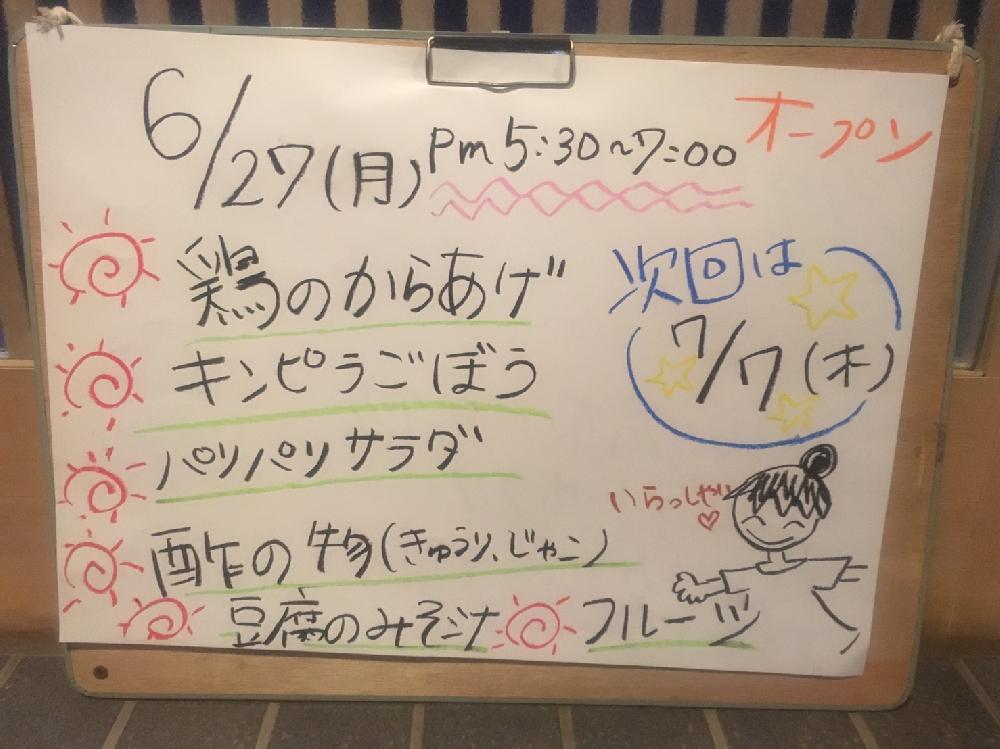 6/27(月) Pm 5:30~7:00 オープン
鶏のからあげ
キンピラごぼう
パリパリサラダ
酢の物(きゅうり、じゃこ)
豆腐のみそ汁
フルーツ
次回は
7/7(木)
いらっしゃい♡